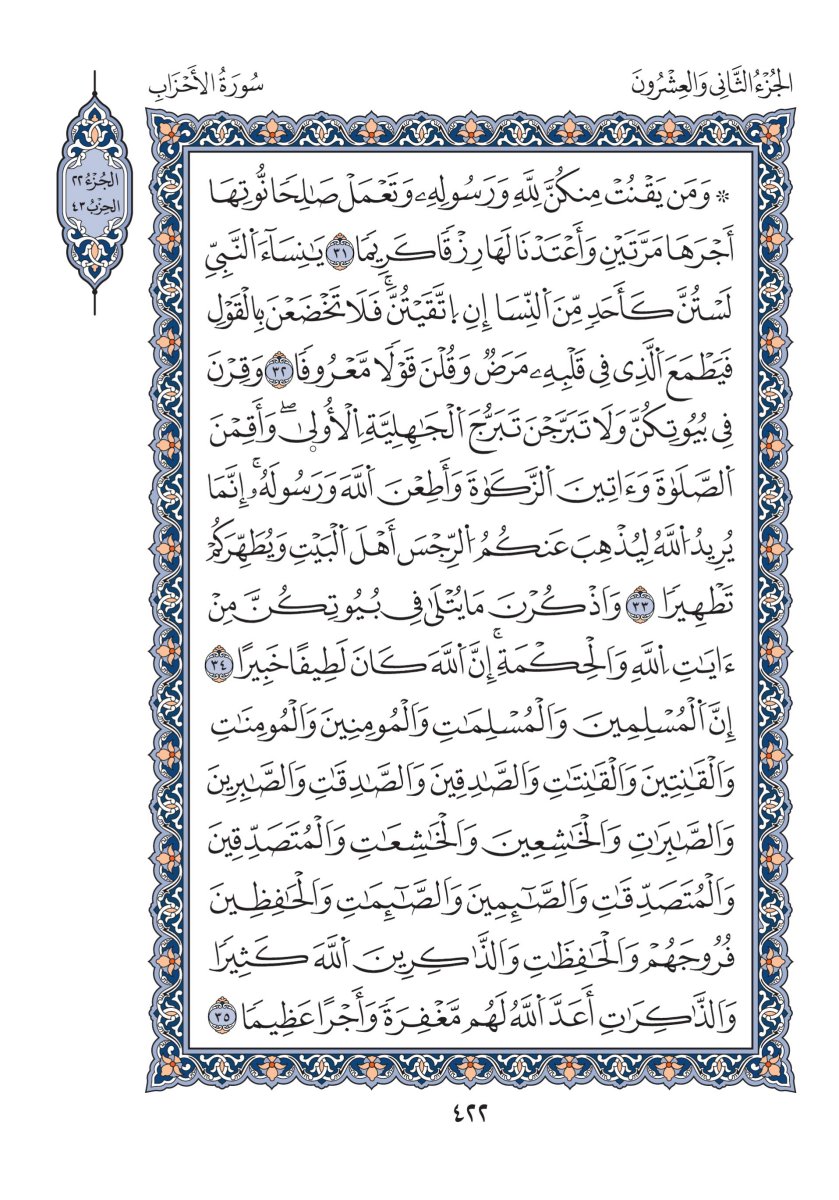 الجُزْءُ الثَّانِي وَالعِشْرُونَ
سُورَةُ الأَحْزَابِ
الجُزْءُ ٢٢
الحِزْبُ ٤٣
۞ وَمَن يَقْنُتْ مِنكُنَّ لِلَّهِ وَرَسُولِهِۦ وَتَعْمَلْ صَٰلِحًا نُّوتِهَا
أَجْرَهَا مَرَّتَيْنِ وَأَعْتَدْنَا لَهَا رِزْقًا كَرِيمًا ٣١ يَٰنِسَآءَ اَلنَّبِيِّ
لَسْتُنَّ كَأَحَدٍ مِّنَ اَلنِّسَا إِنِ اِتَّقَيْتُنَّۚ فَلَا تَخْضَعْنَ بِالْقَوْلِ
فَيَطْمَعَ اَلَّذِي فِي قَلْبِهِۦ مَرَضٌ وَقُلْنَ قَوْلًا مَّعْرُوفًا ٣٢ وَقِرْنَ
فِي بُيُوتِكُنَّ وَلَا تَبَرَّجْنَ تَبَرُّجَ اَلْجَٰهِلِيَّةِ اِلْأُولىٰۖ وَأَقِمْنَ
اَلصَّلَوٰةَ وَءَاتِينَ اَلزَّكَوٰةَ وَأَطِعْنَ اَللَّهَ وَرَسُولَهُۥۚ إِنَّمَا
يُرِيدُ اُللَّهُ لِيُذْهِبَ عَنكُمُ اُلرِّجْسَ أَهْلَ اَلْبَيْتِ وَيُطَهِّرَكُمْ
تَطْهِيرًا ٣٣ وَاَذْكُرْنَ مَا يُتْلَىٰ فِي بُيُوتِكُنَّ مِنْ
ءَايَٰتِ اِللَّهِ وَاَلْحِكْمَةِۚ إِنَّ اَللَّهَ كَانَ لَطِيفًا خَبِيرًا ٣٤
إِنَّ اَلْمُسْلِمِينَ وَاَلْمُسْلِمَٰتِ وَاَلْمُومِنِينَ وَاَلْمُومِنَٰتِ
وَاَلْقَٰنِتِينَ وَاَلْقَٰنِتَٰتِ وَاَلصَّٰدِقِينَ وَاَلصَّٰدِقَٰتِ وَاَلصَّٰبِرِينَ
وَاَلصَّٰبِرَٰتِ وَاَلْخَٰشِعِينَ وَاَلْخَٰشِعَٰتِ وَاَلْمُتَصَدِّقِينَ
وَاَلْمُتَصَدِّقَٰتِ وَاَلصَّٰٓئِمِينَ وَاَلصَّٰٓئِمَٰتِ وَاَلْحَٰفِظِينَ
فُرُوجَهُمْ وَاَلْحَٰفِظَٰتِ وَاَلذَّٰكِرِينَ اَللَّهَ كَثِيرًا
وَاَلذَّٰكِرَٰتِ أَعَدَّ اَللَّهُ لَهُم مَّغْفِرَةً وَأَجْرًا عَظِيمًا ٣٥
٤٢٢